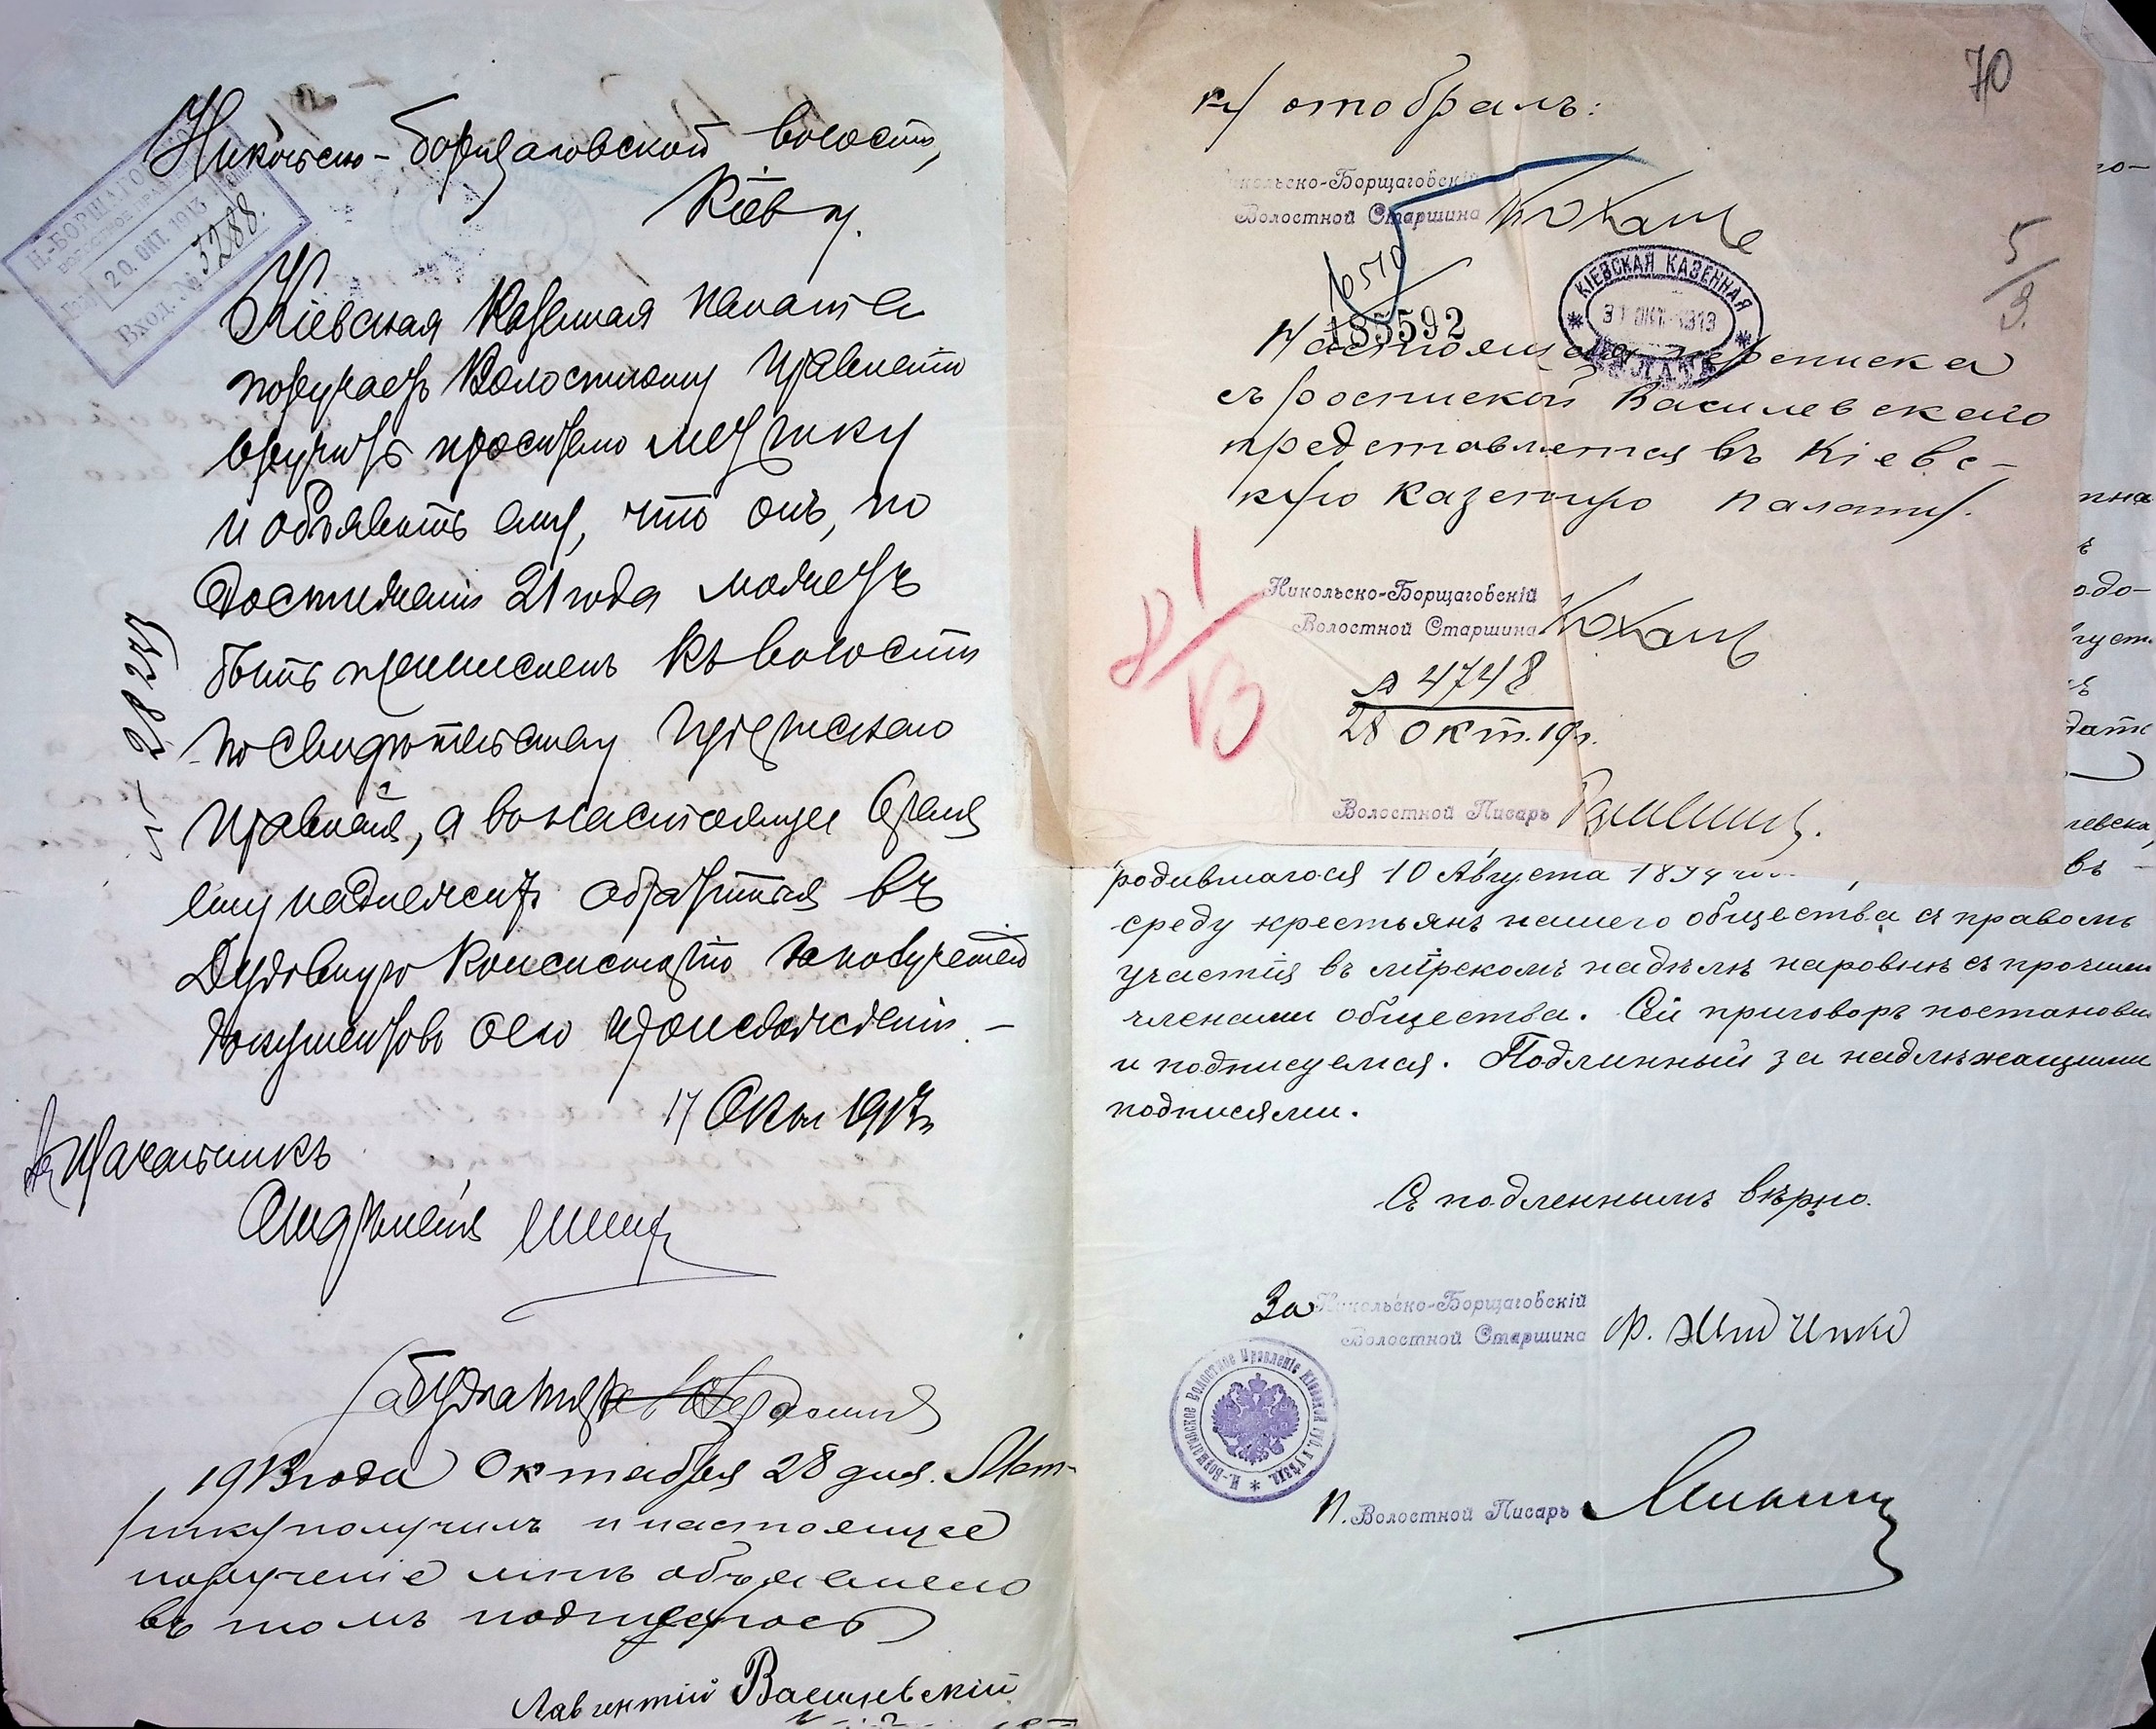 Никольско-Борщаговской волости,
Кіеву.
Н.-БОРЩАГОВ
20. ОКТ. 1913
Вход. № 3288.
Кіевская Казенная Палата
поручаетъ Волостному Правленію
вручить просителю метрику
и объявить ему, что онъ, по
достиженіи 21 года можетъ
быть причисленъ къ волости
по свидѣтельству
Правленія, а въ настоящее время
ему надлежитъ обратиться въ
Духовную Консисторію за полученіем
документовъ о его происхожденіи. —
17 Окт 1913 г.
№ 28 233
Начальникъ
Отдѣленія
Бухгалтеръ
1913 года Октября 28 дня. Мет-
рику получилъ и настоящее
порученіе мнѣ объявлено
въ томъ подпишусь
Лаврентій Василевскій
70
отобралъ:
Никольско-Борщаговскій
Волостной Старшина Кохан
16510
185592
КІЕВСКАЯ КАЗЕННАЯ
31 ОКТ. 1913
ПАЛАТА
5/3.
Настоящая переписка
съ роспиской Василевскаго
представляется въ Кіевс-
кую Казенную Палату.
Никольско-Борщаговскій
Волостной Старшина Кохан
№ 4748
28 Окт. 19 г.
Волостной Писарь
родившагося 10 Августа 1894 въ
среду крестьянъ нашего общества съ правомъ
участія въ мірскомъ надѣлѣ наровнѣ съ прочими
членами общества. Сей приговоръ постанови
и подписуемся. Подлинный за надлѣжащими
подписями.
Съ подленнымъ вѣрно.
За Никольско-Борщаговскій
Волостной Старшина Ф.
Н.-Борщаговское Волостное Правленіе Кіевской губ. и уѣзда.
П. Волостной Писарь